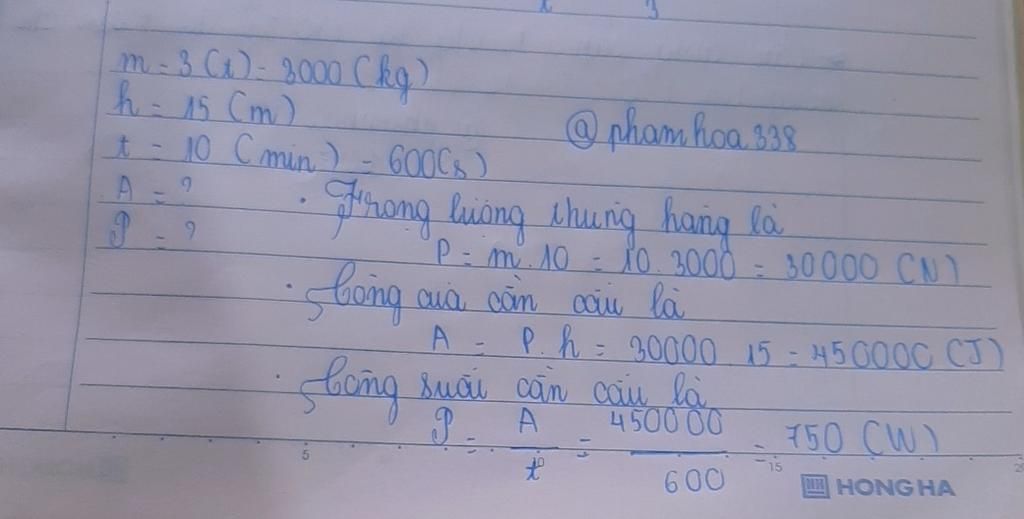 m = 3 (t) = 3000 (kg)
h = 15 (m)
@phamhoa338
t = 10 (min) = 600(s)
A = ?
. Trọng lượng thùng hàng là
𝒫 = ?
P = m.10 = 10.3000 = 30000 (N)
. Công của cần cẩu là
A = P.h = 30000.15 = 450000 (J)
. Công suất cần cẩu là
𝒫 = A/t = 450000/600 = 750 (W)
5
15
HONG HA